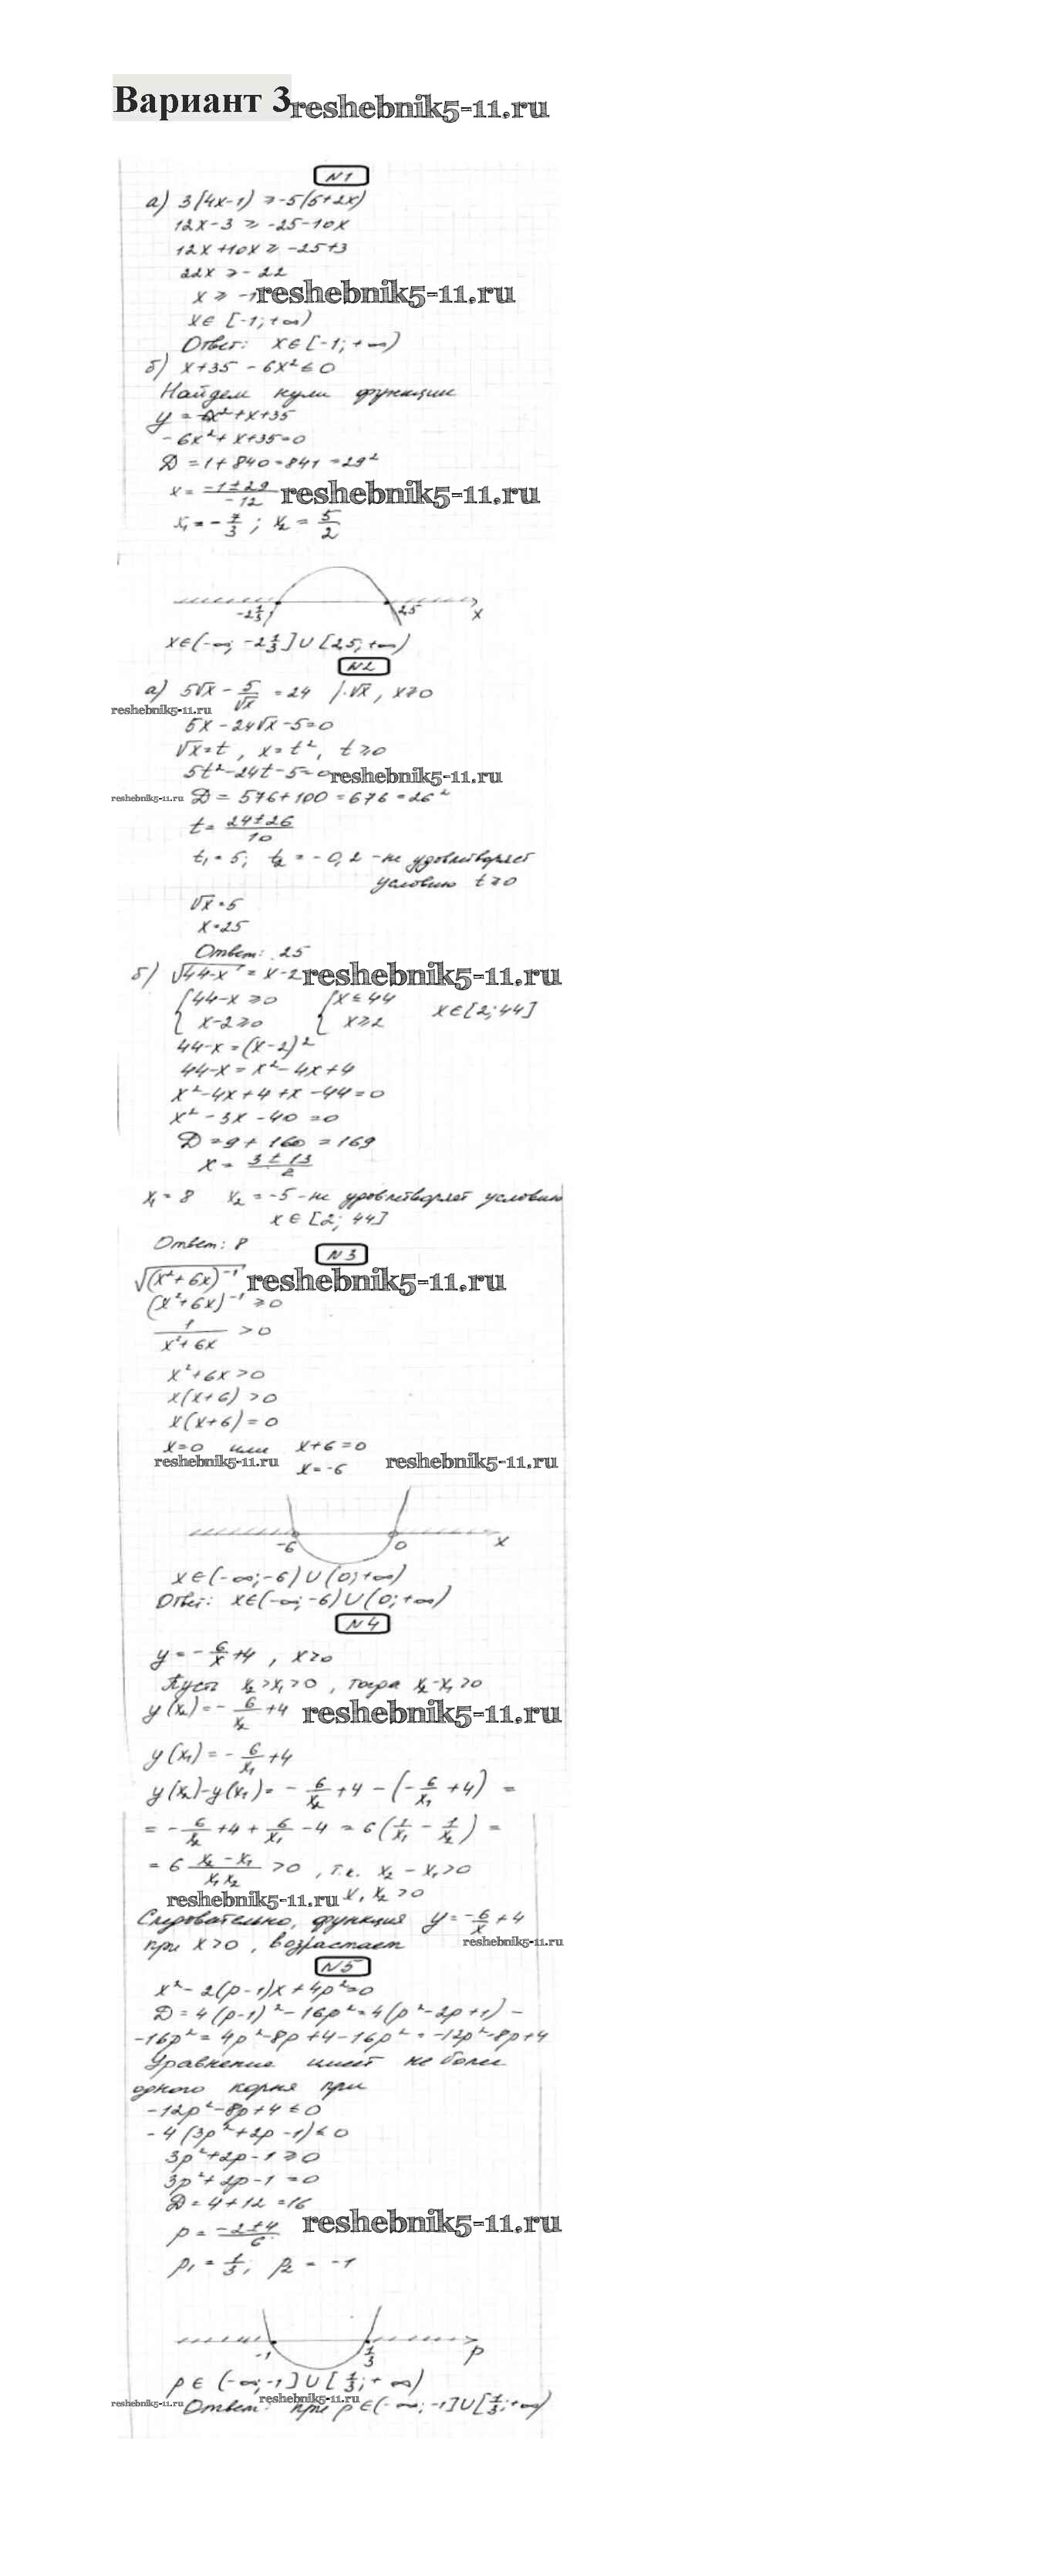 Вариант 3 reshebnik5-11.ru
N1
а) 3(4x-1) ≥ -5(5+2x)
12x-3 ≥ -25-10x
12x+10x ≥ -25+3
22x ≥ -22
x ≥ -1 reshebnik5-11.ru
x∈ [-1;+∞)
Ответ: x∈[-1;+∞)
б) x+35 - 6x² ≤ 0
Найдем нули функции
y = -6x²+x+35
-6x²+x+35=0
D = 1+840=841=29²
x = (-1±29)/(-12) reshebnik5-11.ru
x₁ = -7/3 ; x₂ = 5/2
-2 1/3 2,5 x
x∈(-∞; -2 1/3]∪[2,5;+∞)
N2
а) 5√x - 5/√x = 24 |·√x, x>0
reshebnik5-11.ru
5x - 24√x - 5=0
√x=t, x=t², t≥0
5t²-24t-5=0 reshebnik5-11.ru
reshebnik5-11.ru D = 576+100=676=26²
t = (24±26)/10
t₁=5; t₂ = -0,2 - не удовлетворяет
условию t≥0
√x=5
x=25
Ответ: 25
б) √(44-x) = x-2 reshebnik5-11.ru
{44-x ≥0 {x≤44 x∈[2;44]
{x-2≥0 {x≥2
44-x=(x-2)²
44-x=x²-4x+4
x²-4x+4+x-44=0
x²-3x-40=0
D=9+160=169
x = (3±13)/2
x₁=8 x₂=-5 - не удовлетворяет условию
x∈[2; 44]
Ответ: 8
N3
√((x²+6x)⁻¹) reshebnik5-11.ru
(x²+6x)⁻¹ ≥0
1/(x²+6x) >0
x²+6x>0
x(x+6)>0
x(x+6)=0
x=0 или x+6=0
reshebnik5-11.ru x=-6 reshebnik5-11.ru
-6 0 x
x∈(-∞;-6)∪(0;+∞)
Ответ: x∈(-∞;-6)∪(0;+∞)
N4
y = -6/x +4, x>0
Пусть x₂>x₁>0, тогда x₂-x₁>0
y(x₂) = -6/x₂ +4 reshebnik5-11.ru
y(x₁) = -6/x₁ +4
y(x₂)-y(x₁) = -6/x₂ +4 - (-6/x₁ +4) =
= -6/x₂ +4 + 6/x₁ -4 = 6(1/x₁ - 1/x₂) =
= 6 (x₂-x₁)/(x₁x₂) >0, т.к. x₂-x₁>0
reshebnik5-11.ru x₁x₂>0
Следовательно, функция y = -6/x +4
при x>0, возрастает reshebnik5-11.ru
N5
x²-2(p-1)x+4p²=0
D=4(p-1)²-16p²=4(p²-2p+1)-
-16p²=4p²-8p+4-16p²=-12p²-8p+4
Уравнение имеет не более
одного корня при
-12p²-8p+4≤0
-4(3p²+2p-1)≤0
3p²+2p-1≥0
3p²+2p-1=0
D=4+12=16
p = (-2±4)/6 reshebnik5-11.ru
p₁ = 1/3; p₂ = -1
-1 1/3 p
p∈(-∞;-1]∪[1/3;+∞)
reshebnik5-11.ru reshebnik5-11.ru
Ответ: при p∈(-∞;-1]∪[1/3;+∞)